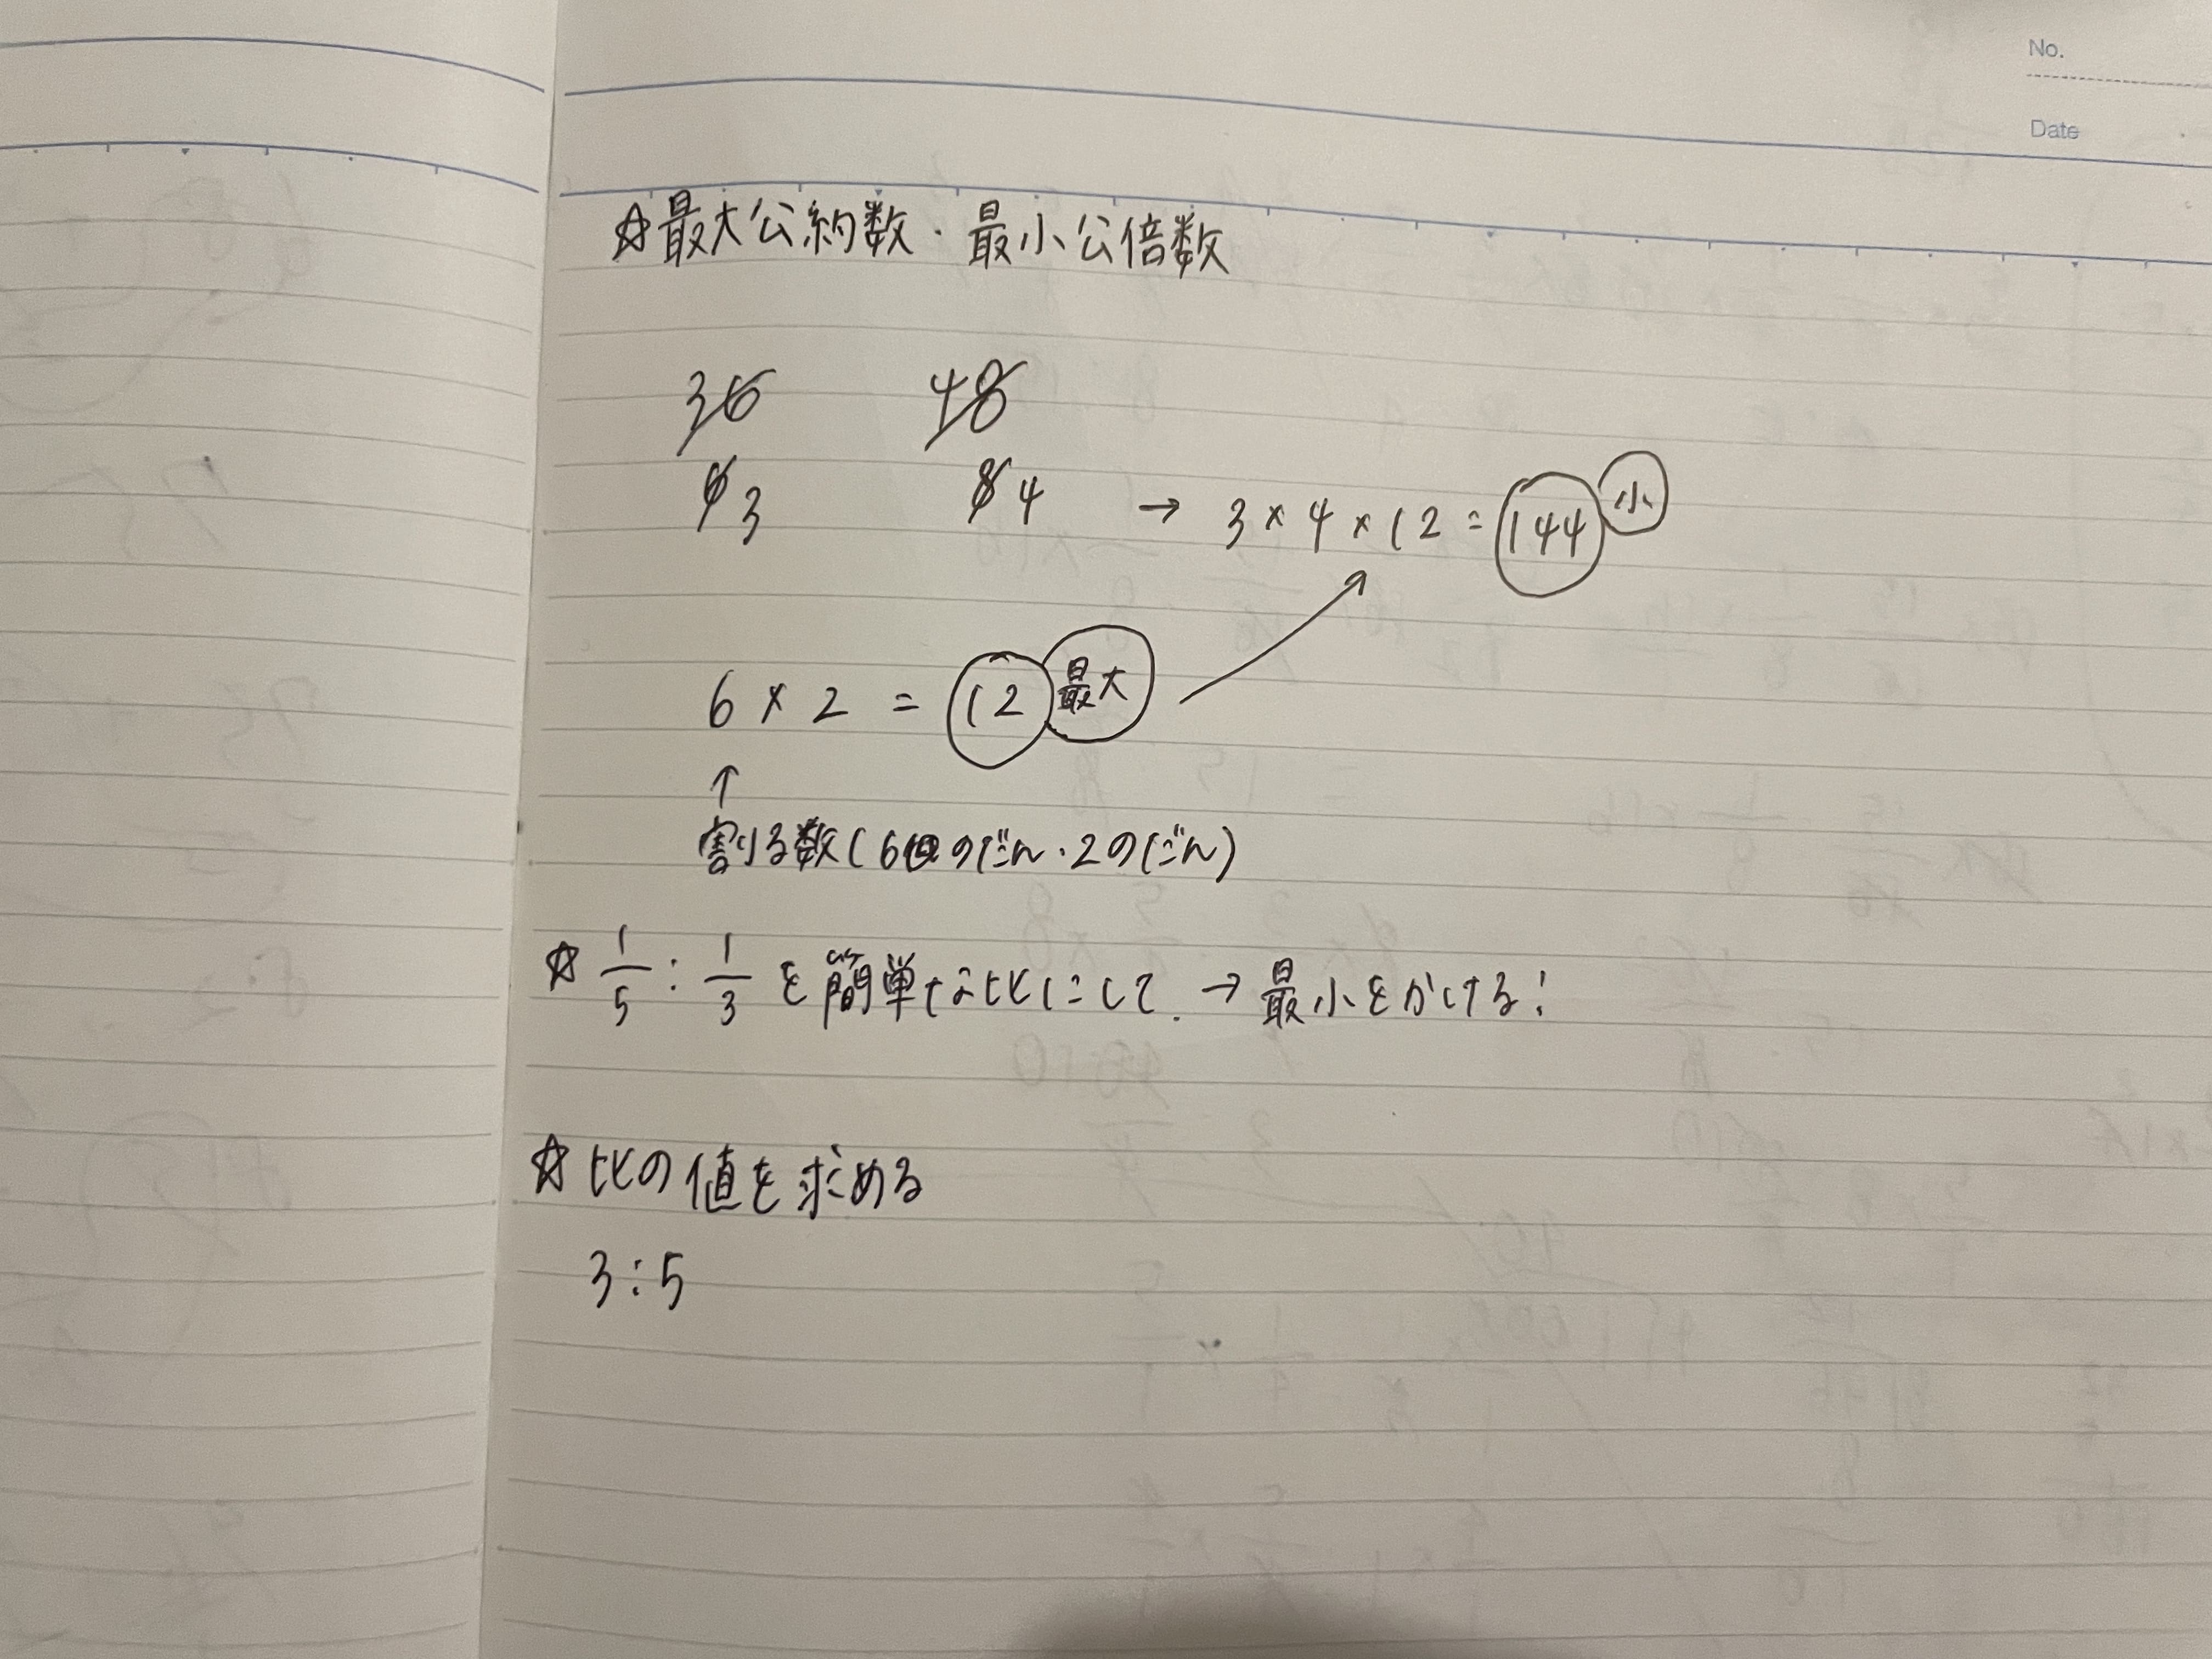 No.
Date
☆最大公約数・最小公倍数
36 48
6 3 8 4 → 3×4×12=144 小
6×2=12 最大
↑
割る数(6のだん・2のだん)
☆ 1/5 : 1/3 を簡単な比にして. → 最小をかける!
☆比の値を求める
3:5